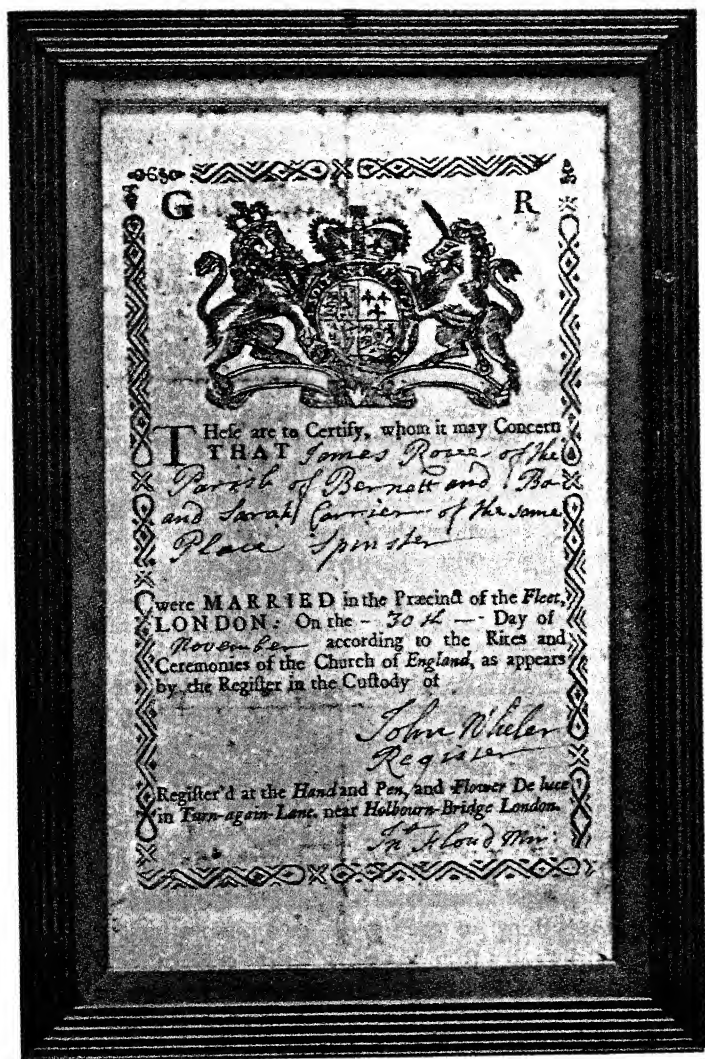 G R
THese are to Certify, whom it may Concern
THAT James Rowe of the
Parish of Bernett and Ba
and Sarah Carrier of the same
Place Spinster
were MARRIED in the Præcinct of the Fleet,
LONDON: On the - 30th - Day of
November according to the Rites and
Ceremonies of the Church of England, as appears
by the Register in the Custody of
John Wheler
Register
Register'd at the Hand and Pen, and Flower De luce
in Turn-again-Lane. near Holbourn-Bridge London.
Jnº Floud Minr: